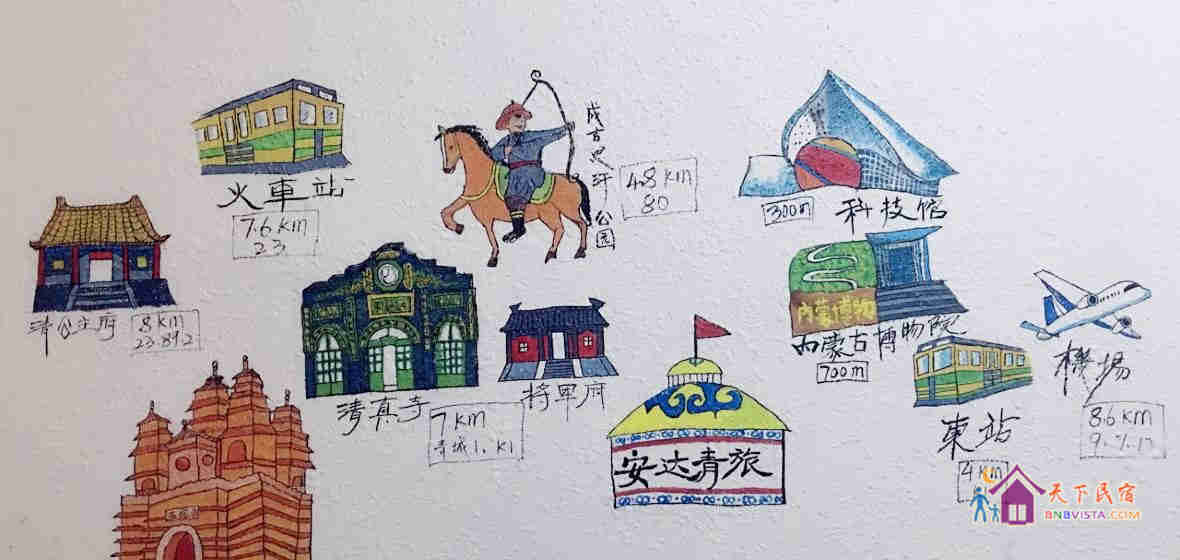 火車站
7.6 km
23
成吉思汗公园
4.8 km
80
300m
科技馆
清公主府
8 km
内蒙博物
内蒙古博物院
700m
機場
8.6 km
清真寺
7 km
将军府
安达青旅
東站
4 km
天下民宿
BNBVISTA.COM